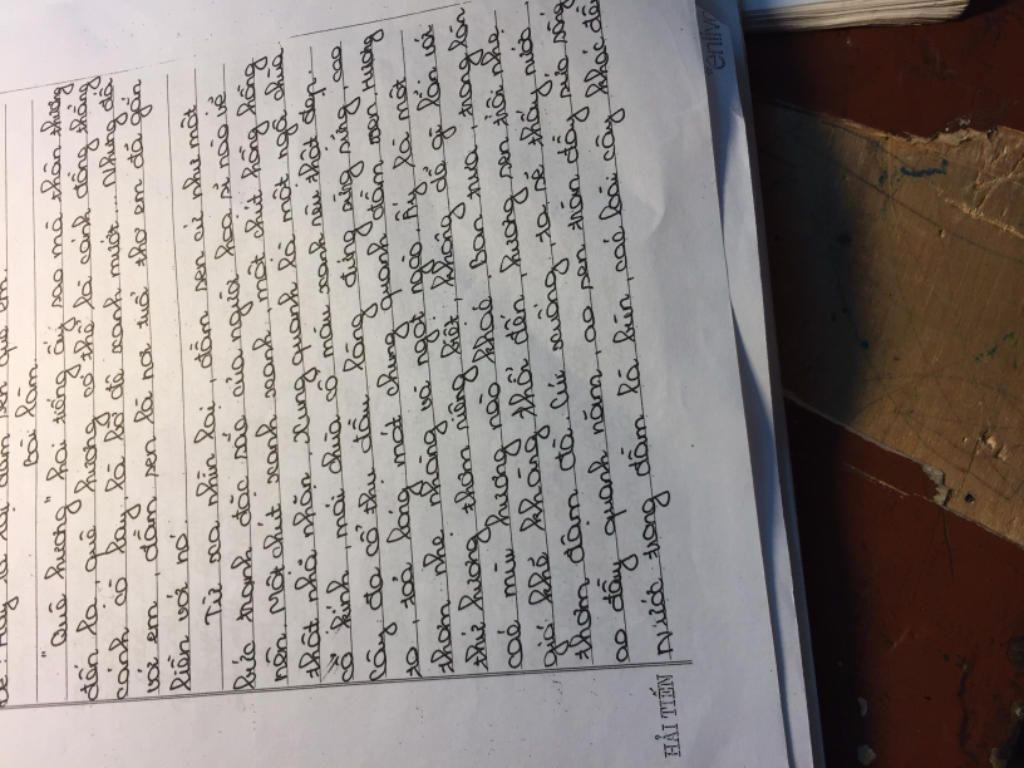 Đề: Hãy tả lại đầm sen quê em.
Bài làm.
"Quê hương" hai tiếng ấy sao mà thân thương
đến lạ, quê hương có thể là cánh đồng thẳng
cánh cò bay, là lũy đê xanh mướt... Nhưng đối
với em, đầm sen là nơi tuổi thơ em đã gắn
liền với nó.
Từ xa nhìn lại, đầm sen cứ như một
bức tranh đặc sắc của người họa sĩ nào vẽ
nên. Một chút xanh xanh, một chút hồng hồng
thật nhã nhặn. Xung quanh là một ngả chùa
cổ kính, mái chùa có màu xanh nâu thật đẹp...
Cây đa cổ thụ đầu làng đứng sừng sững, cao
to, toả bóng mát chung quanh đầm sen hương
thơm nhẹ nhàng và ngọt ngào. Ấy là một
thứ hương thơm riêng biệt, không dễ gì lẫn với
các mùi hương nào khác. Ban trưa, trong làn
gió khẽ khàng thổi đến, hương sen trôi nhẹ
thơm đậm đà. Cúi xuống, ta sẽ thấy nước
ao đầy quanh năm, ao sen tràn đầy nước
Nước trong đầm là bùn, các loài cây khác đều
HẢI TIẾN